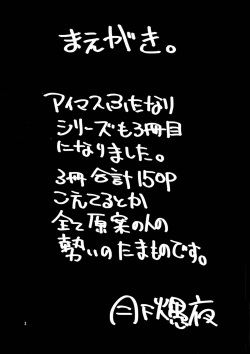 まえがき。
アイマスひもなり
シリーズも3冊目
になりました。
3冊合計150P
こえてるとか
全て原案の人の
勢いのたまものです。
月下愚夜
3